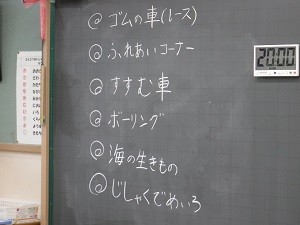 @ ゴムの車(レース)
@ ふれあいコーナー
@ すすむ車
@ ボーリング
@ 海の生きもの
@ じしゃくでめいろ
20:00